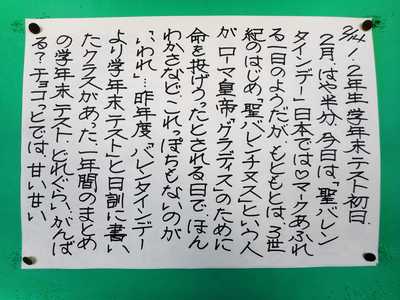 2/14!。2年生学年末テスト初日.
2月、はや半分。今日は「聖バレン
タインデー」日本では♡マークあふれ
る一日のようだが、もともとは、3世
紀のはじめ「聖バレンチヌス」という人
が、ローマ皇帝「グラディス」のために
命を投げうったとされる日で、ほん
わかさなど、これっぽちもないのが
いわれ」…昨年度、バレンタインデー
より学年末テスト」と日訓に書い
たクラスがあった。一年間のまとめ
の学年末テスト。どれぐらい、がんば
る?チョコっとでは、甘い甘い